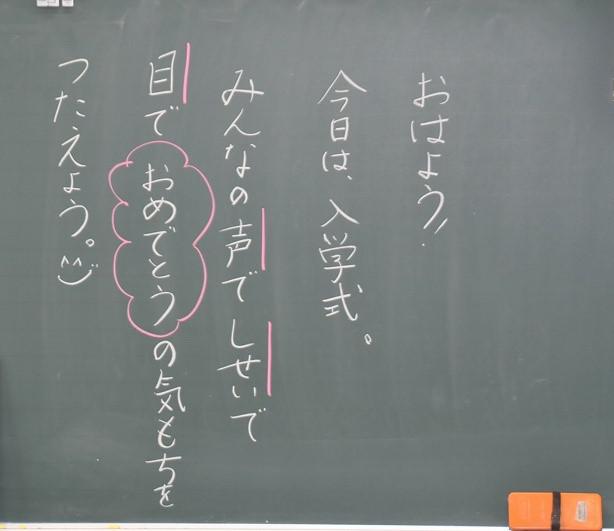 おはよう!!
今日は、入学式。
みんなの声でしせいで
目でおめでとうの気もちを
つたえよう。^^